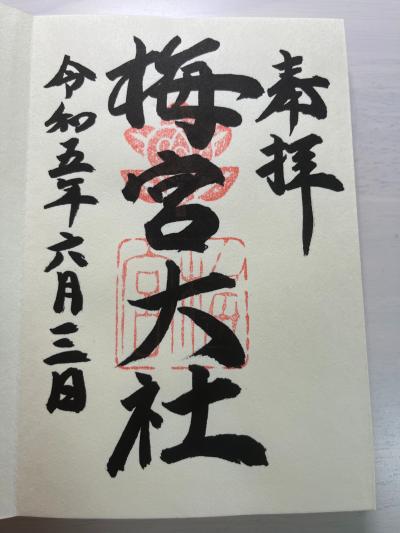 奉拝
梅宮大社
梅宮
令和五年六月三日